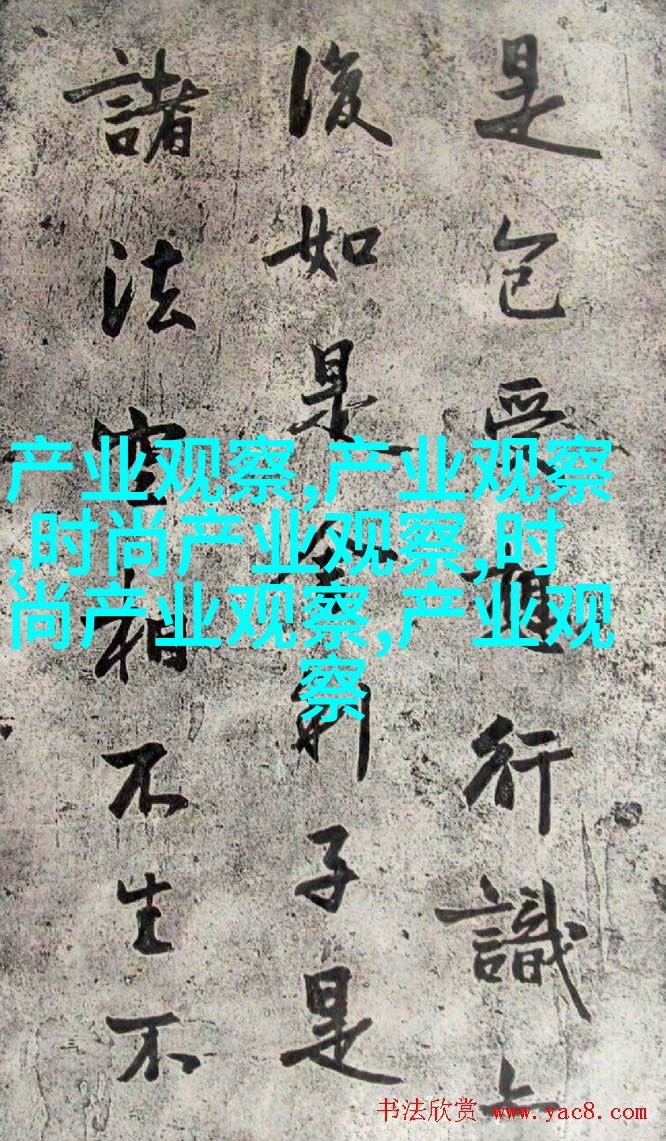 是色受想行識亦
復如是舍利子是
諸法空相不生不
产业观察,产业观察
,时尚产业观察,时
尚产业观察,产业观
察
书法欣赏 www.yac8.com